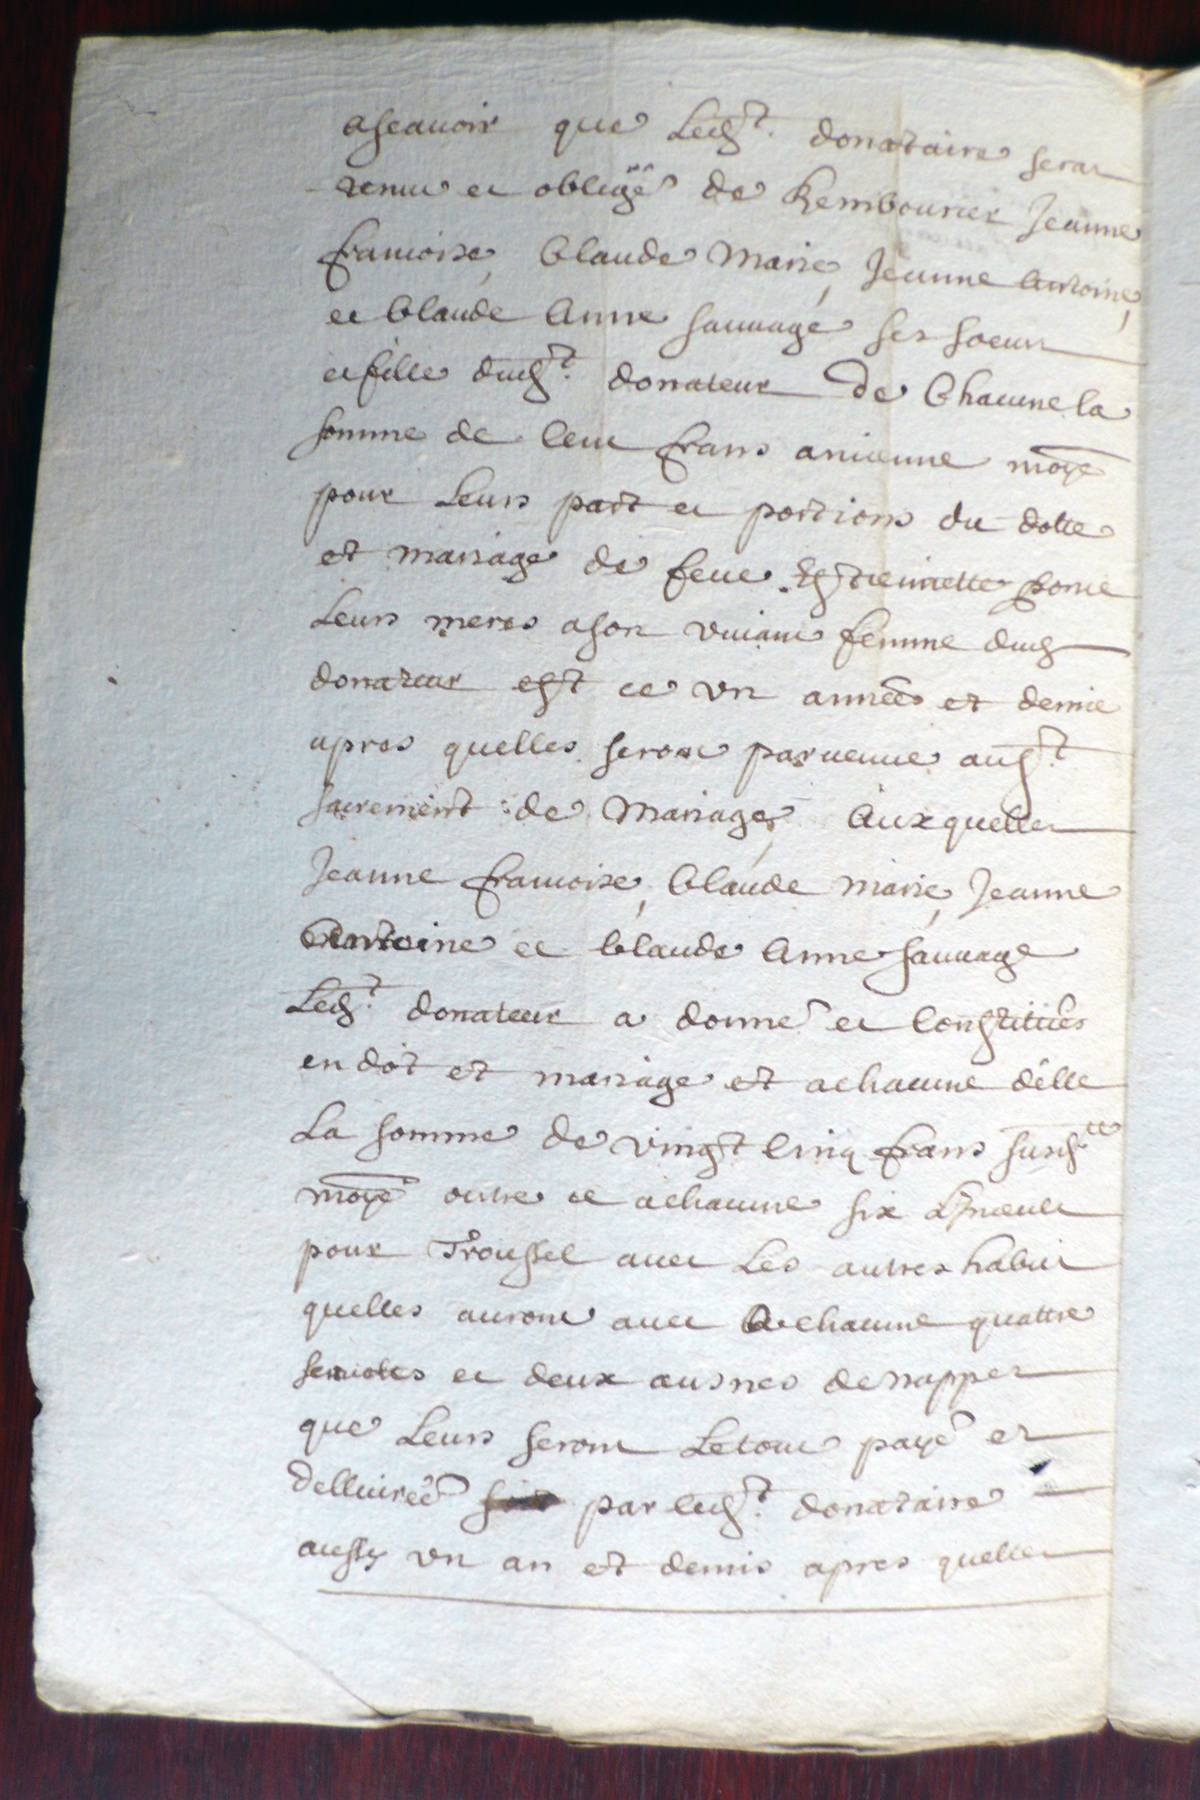 ascauoir que Ledt. donataire serat
tenu et obligé de Rembourcer Jeanne
francoise, Claude Marie, Jeanne Antoine,
et Claude Anne sauuage ses soeurs
et fille dudt. donateur De Chacune la
somme de Cent frans ancienne moye
pour Leurs part et portions du dotte
et mariage de feue Estiennette
Leurs meres a son viuant femme dud
donateur est ce vn années et demie
apres quelles seront paruenue aust.
sacrement de Mariage, Auxquelles
Jeanne francoise, Claude marie, Jeanne
Antoine et Claude Anne sauuage
Ledt. donateur a donné et Constitués
en dot et mariage et a chacune d'elle
La somme de vingt Cinq frans susdtte
moye outre et a chacune six Linceult
pour Troussel auec Les autres habit
quelles auront auec A chacune quattre
seruietes et deux ausnes de nappes
que Leurs seront Letout payé et
dellurée par ledt. donataire
aussy vn an et demis apres quelles